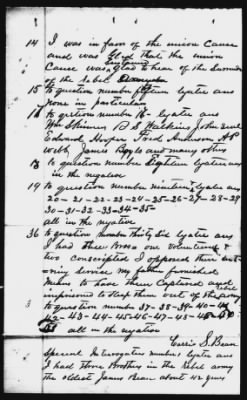 14 I was in favor of the union Cause
and was Glad that the union
Cause was glad to hear of the Surrender
of the rebel
15 to question number fifteen
none in particular
16 to question number 16
Wm Skinner B S Watkins John
Edward Hooper Fred
Webb James Boyle and many others
18 to question number Eighteen
in the negative
19 to question number nineteen
20-21-22-23-24-25-26-27-28-29
30-31-32-33-34-35-
all in the negative
36 to question number thirty Six
I had three Bros one volunteered &
two conscripted I opposed their
my father furnished
means to have them Captured and
imprisoned to keep them out of the rebel army
to question number 37-38-39-40-41
42-43-44-45-46-47-48-49-50
all in the negative
S. Bean
Special Interrogatory number
I had three Brothers in the rebel army
the oldest James Bean about 42 years